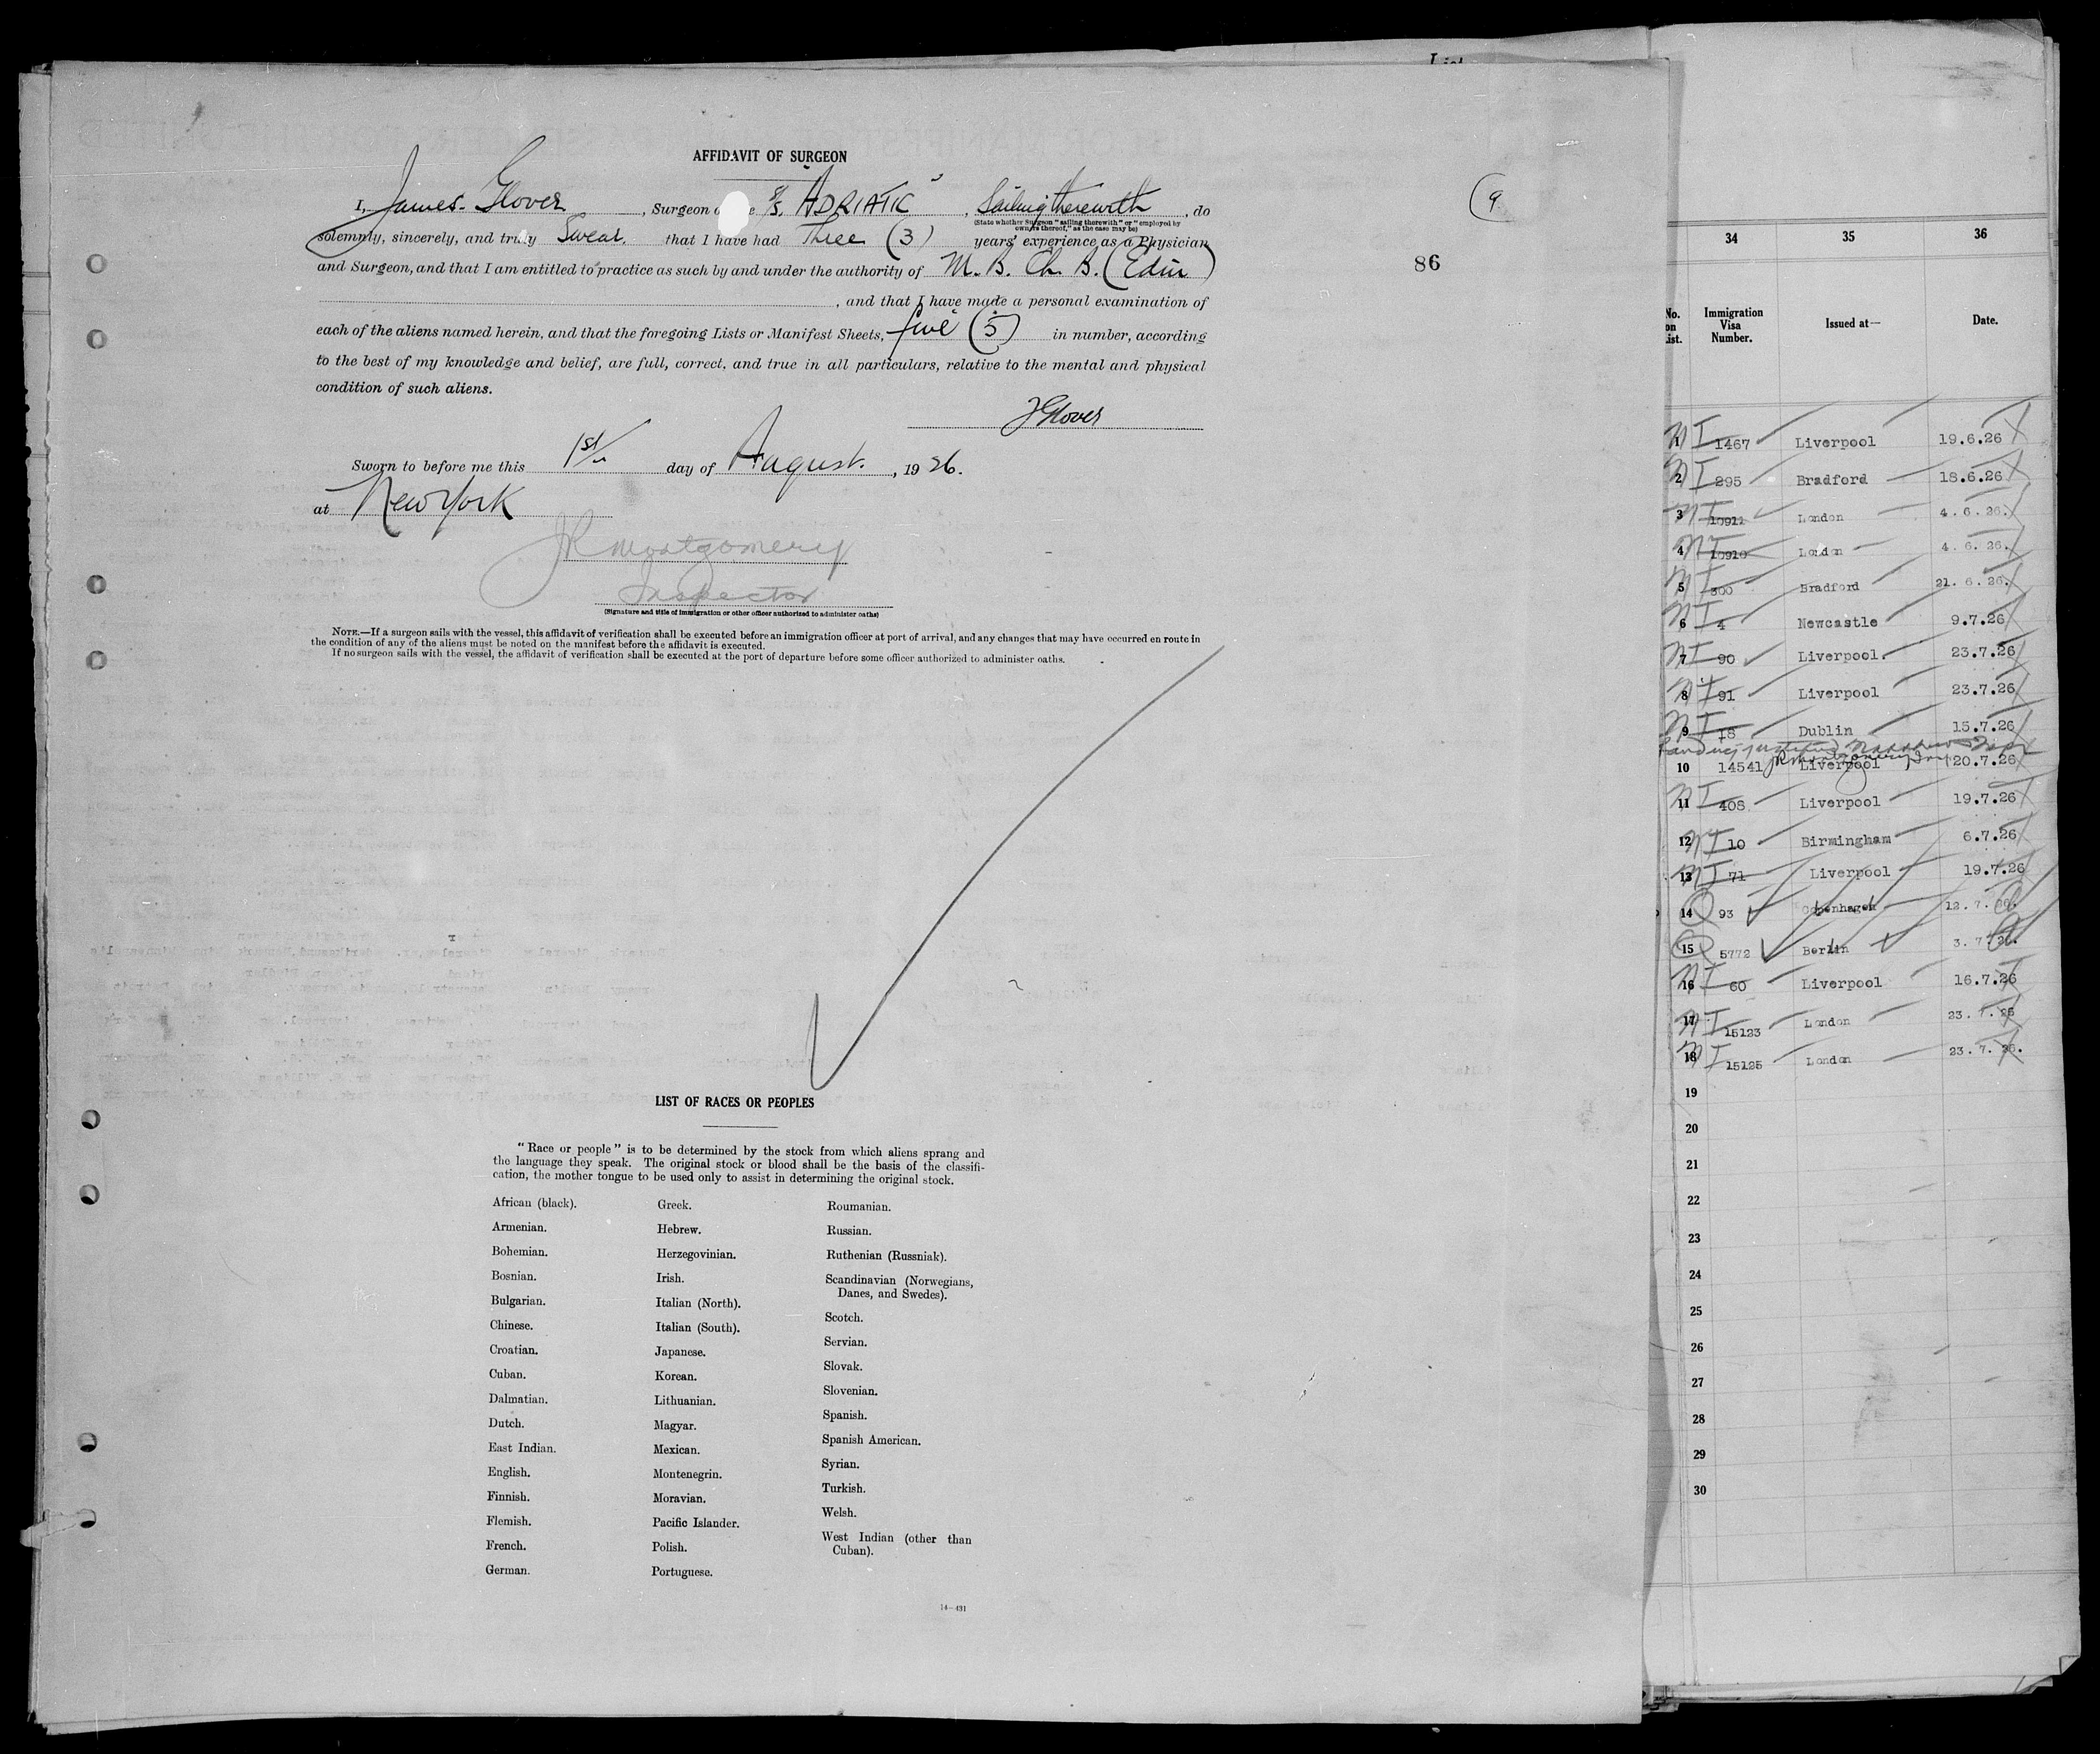 AFFIDAVIT OF SURGEON
I, James Glover, Surgeon e S/S. "ADRIATIC", Sailing therewith, do
(State whether Surgeon "sailing therewith" or "employed by
owners thereof," as the case may be)
solemnly, sincerely, and truly Swear. that I have had Three (3) years' experience as a Physician
and Surgeon, and that I am entitled to practice as such by and under the authority of M. B. Ch. B. (Edin)
, and that I have made a personal examination of
each of the aliens named herein, and that the foregoing Lists or Manifest Sheets, five (5) in number, according
to the best of my knowledge and belief, are full, correct, and true in all particulars, relative to the mental and physical
condition of such aliens.
J Glover
Sworn to before me this 1st day of August, 1926.
at New York
JR Montgomery
Inspector
(Signature and title of immigration or other officer authorized to administer oaths)
NOTE.—If a surgeon sails with the vessel, this affidavit of verification shall be executed before an immigration officer at port of arrival, and any changes that may have occurred en route in
the condition of any of the aliens must be noted on the manifest before the affidavit is executed.
If no surgeon sails with the vessel, the affidavit of verification shall be executed at the port of departure before some officer authorized to administer oaths.
9
86
LIST OF RACES OR PEOPLES
"Race or people" is to be determined by the stock from which aliens sprang and
the language they speak. The original stock or blood shall be the basis of the classifi-
cation, the mother tongue to be used only to assist in determining the original stock.
African (black).
Armenian.
Bohemian.
Bosnian.
Bulgarian.
Chinese.
Croatian.
Cuban.
Dalmatian.
Dutch.
East Indian.
English.
Finnish.
Flemish.
French.
German.
Greek.
Hebrew.
Herzegovinian.
Irish.
Italian (North).
Italian (South).
Japanese.
Korean.
Lithuanian.
Magyar.
Mexican.
Montenegrin.
Moravian.
Pacific Islander.
Polish.
Portuguese.
Roumanian.
Russian.
Ruthenian (Russniak).
Scandinavian (Norwegians,
Danes, and Swedes).
Scotch.
Servian.
Slovak.
Slovenian.
Spanish.
Spanish American.
Syrian.
Turkish.
Welsh.
West Indian (other than
Cuban).
14—431
34 35 36
No. on List. Immigration Visa Number. Issued at— Date.
1 1467 Liverpool 19.6.26
2 295 Bradford 18.6.26
3 10911 London 4.6.26.
4 10910 London 4.6.26.
5 300 Bradford 21.6.26.
6 4 Newcastle 9.7.26
7 90 Liverpool. 23.7.26
8 91 Liverpool 23.7.26
9 18 Dublin 15.7.26
10 14541 Liverpool 20.7.26
11 408 Liverpool 19.7.26
12 10 Birmingham 6.7.26
13 71 Liverpool 19.7.26
14 93 Copenhagen 12.7.26.
15 5772 Berlin 3.7.26.
16 60 Liverpool 16.7.26
17 15123 London 23.7.26
18 15125 London 23.7.26.
19
20
21
22
23
24
25
26
27
28
29
30